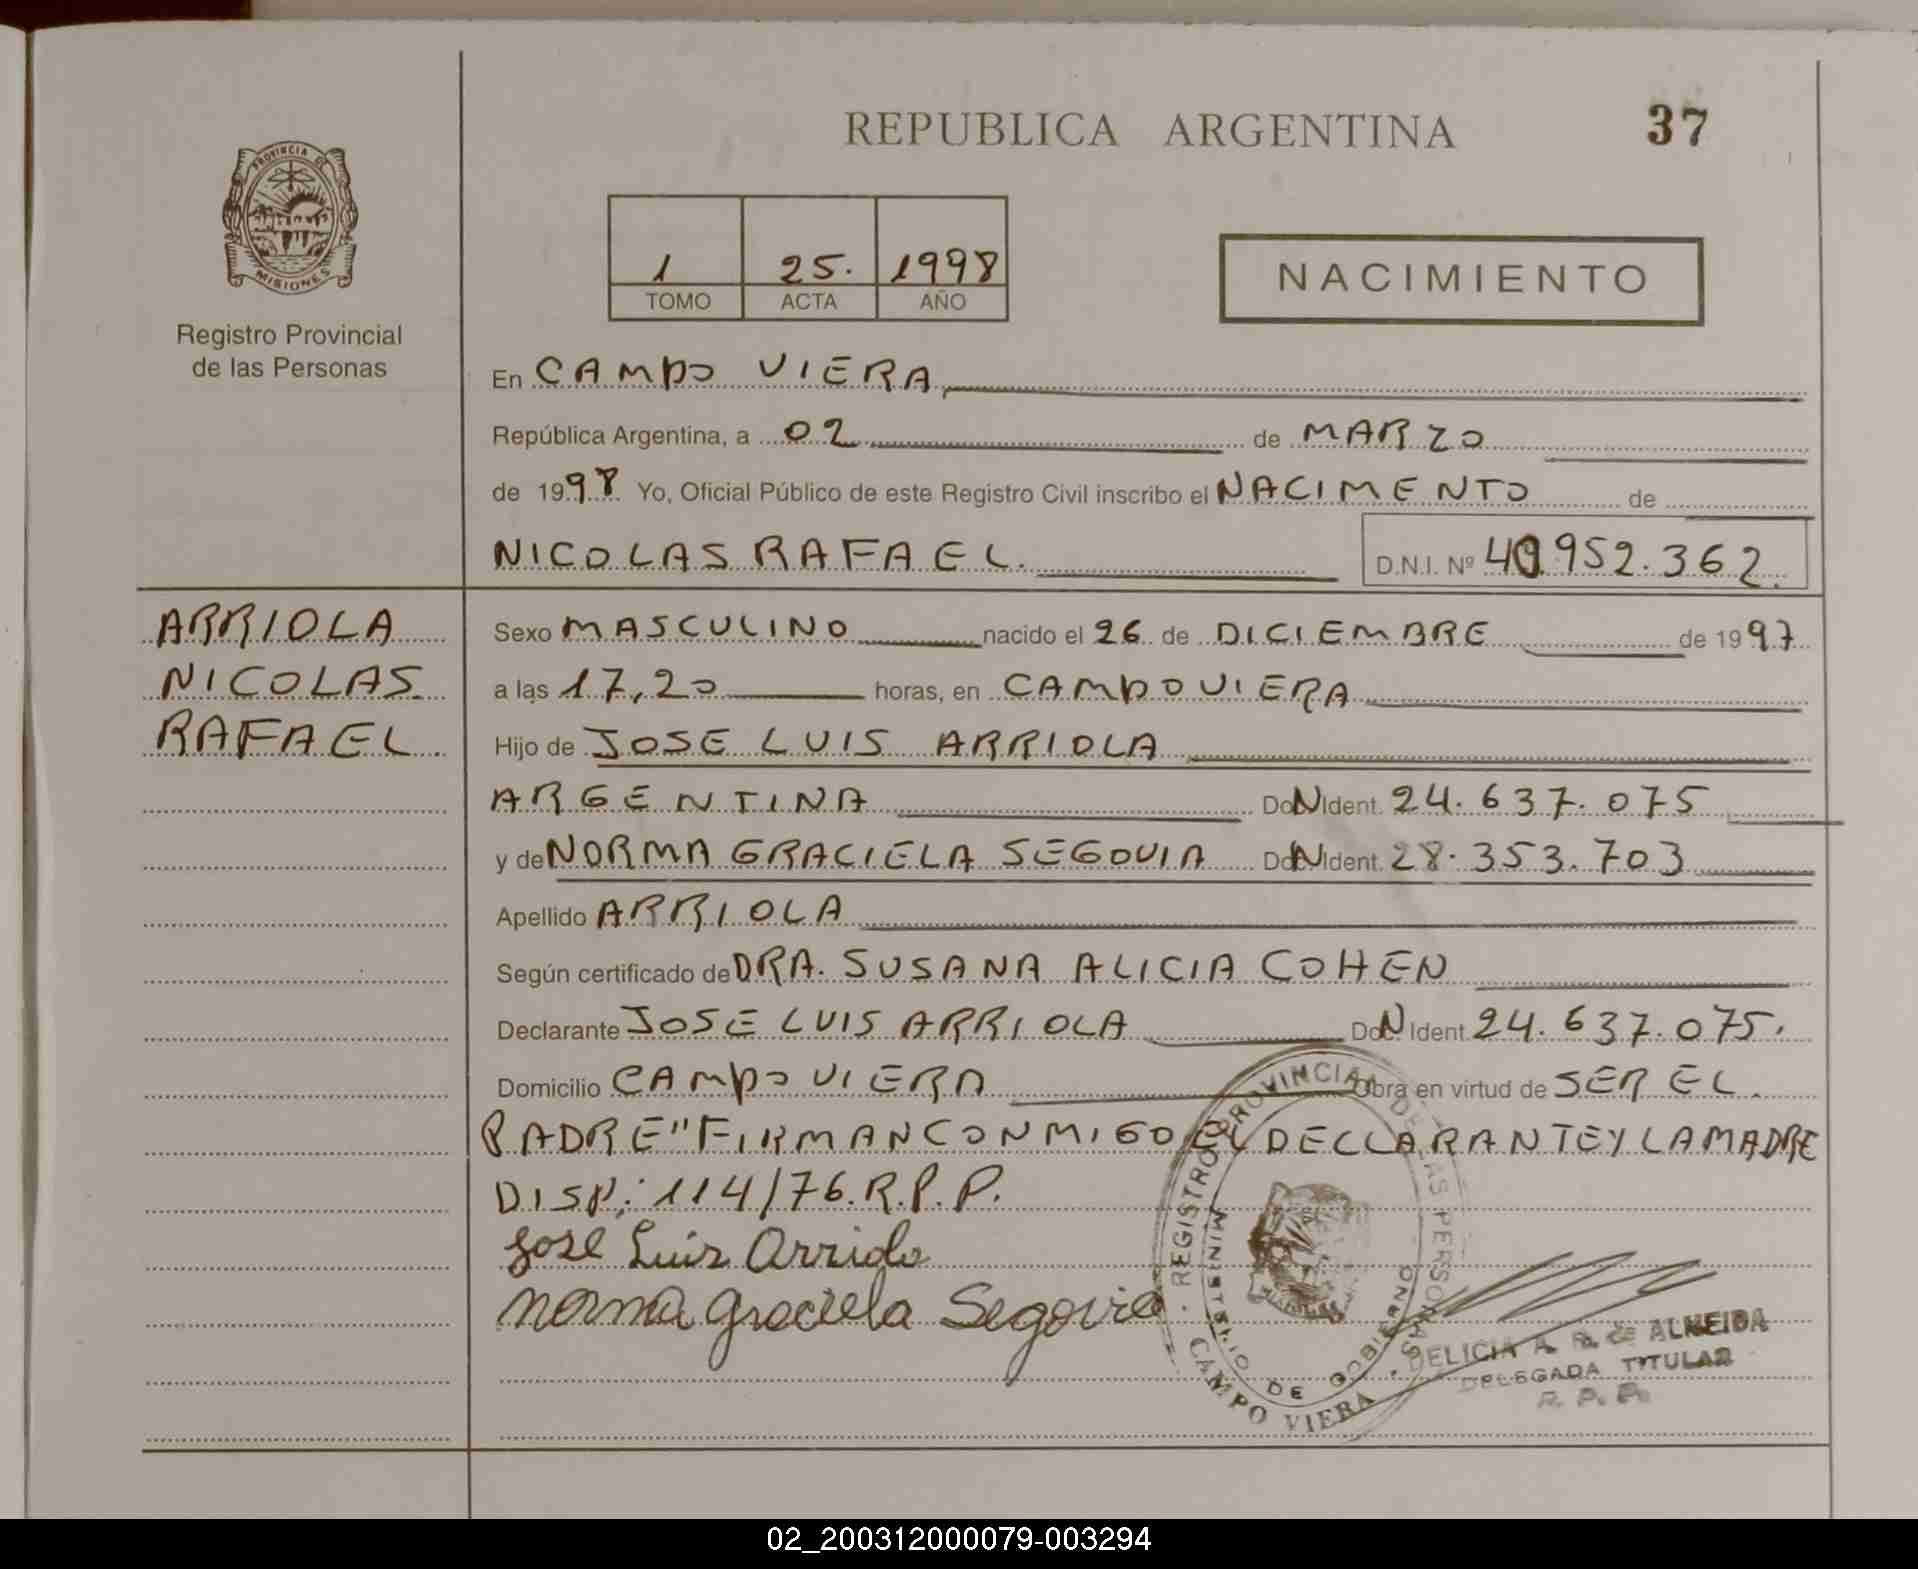 REPUBLICA ARGENTINA
37
PROVINCIA DE
MISIONES
Registro Provincial
de las Personas
1 25. 1998
TOMO ACTA AÑO
NACIMIENTO
En CAMPO VIERA
República Argentina, a 02 de MARZO
de 1998 Yo, Oficial Público de este Registro Civil inscribo el NACIMENTO de
NICOLAS RAFAEL. D.N.I. Nº 40.952.362.
ARRIOLA
NICOLAS
RAFAEL
Sexo MASCULINO nacido el 26 de DICIEMBRE de 1997
a las 17,20 horas, en CAMPO VIERA
Hijo de JOSE LUIS ARRIOLA
ARGENTINA DNI Ident. 24.637.075
y de NORMA GRACIELA SEGOVIA DNI Ident. 28.353.703
Apellido ARRIOLA
Según certificado de DRA. SUSANA ALICIA COHEN
Declarante JOSE LUIS ARRIOLA DNI Ident. 24.637.075.
Domicilio CAMPO VIERA Obra en virtud de SER EL.
PADRE" FIRMAN CONMIGO EL DECLARANTE Y LA MADRE
DISP: 114/76. R.P.P.
Jose Luis Arriola
Norma Graciela Segovia
REGISTRO PROVINCIAL DE LAS PERSONAS
MINISTERIO DE GOBIERNO
CAMPO VIERA
DELICIA A. R. de ALMEIDA
DELEGADA TITULAR
R. P. P.
02_200312000079-003294